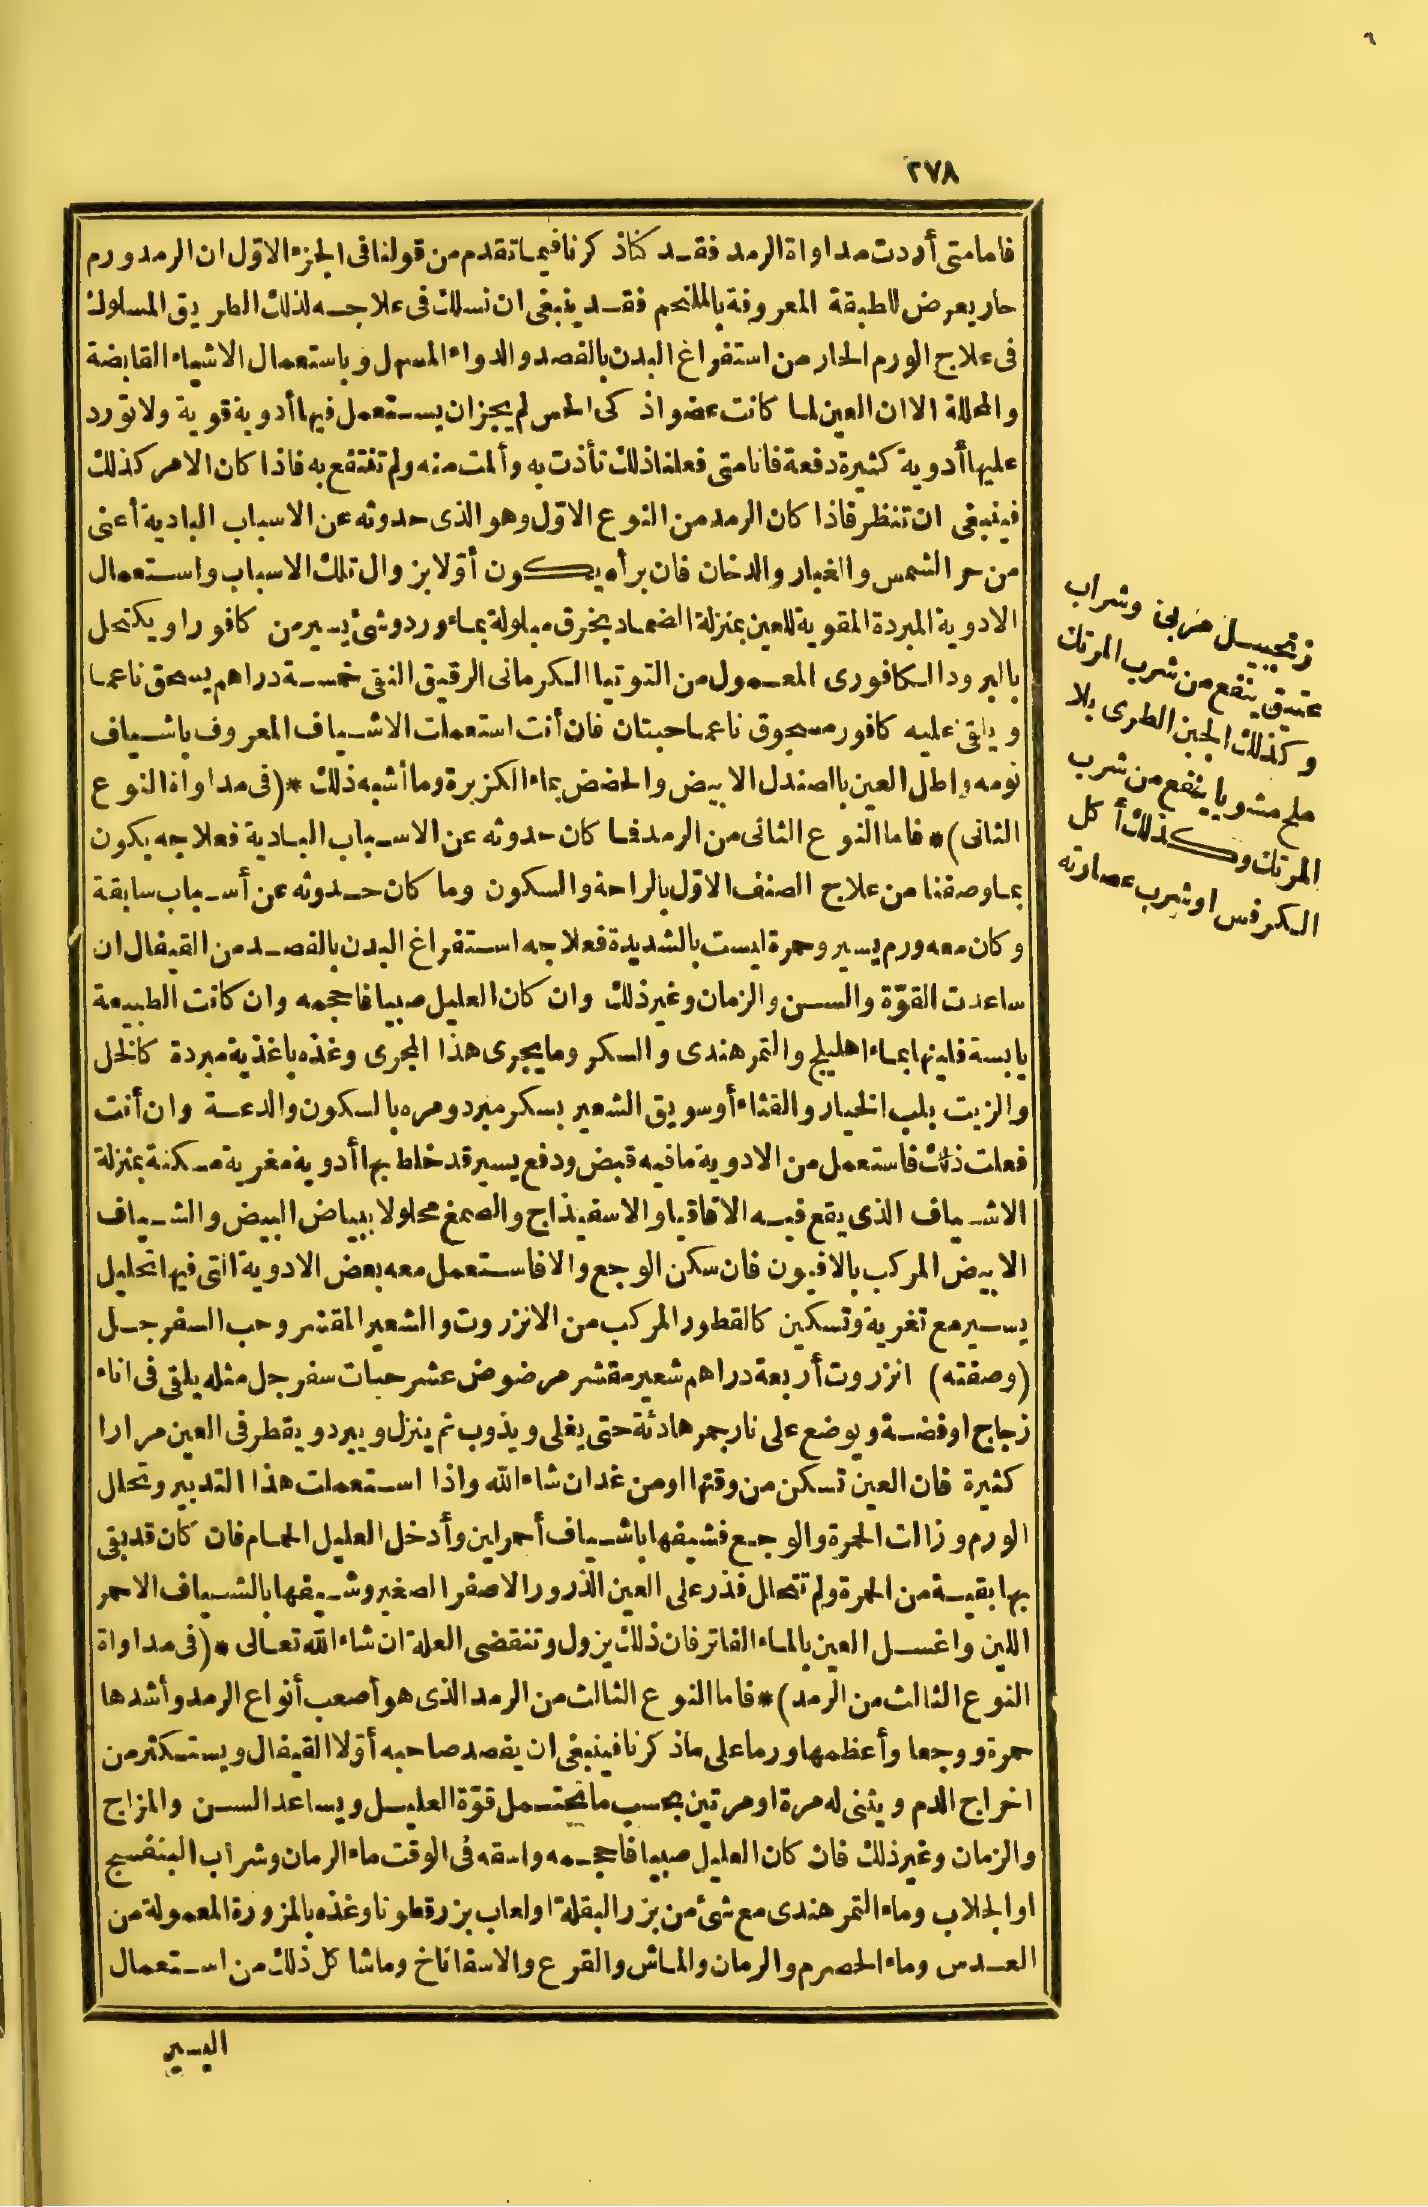 ٢٧٨
فاما متى أردت مداواة الرمد فقد كنا ذكرنا فيما تقدم من قولنا فى الجزء الاوّل ان الرمد ورم
حار يعرض للطبقة المعروفة بالملتحم فقد ينبغى ان نسلك فى علاجه لذلك الطريق المسلوك
فى علاج الورم الحار من استفراغ البدن بالفصد والدواء المسهل وباستعمال الاشياء القابضة
والمحللة الا ان العين لما كانت عضوا ذكى الحس لم يجز ان يستعمل فيها أدوية قوية ولا تورد
عليها أدوية كثيرة دفعة فانا متى فعلنا ذلك تأذت به وألمت منه ولم تنتفع به فاذا كان الامر كذلك
فينبغى ان تنظر فاذا كان الرمد من النوع الاوّل وهو الذى حدوثه عن الاسباب البادية أعنى
من حر الشمس والغبار والدخان فان برأه يكون أوّلا بزوال تلك الاسباب واستعمال
الادوية المبردة المقوية للعين بمنزلة الضماد بخرق مبلولة بماء ورد وشئ يسير من كافور او يكتحل
بالبرود الكافورى المعمول من التوتيا الكرمانى الرقيق النقى خمسة دراهم يسحق ناعما
ويلقى عليه كافور مسحوق ناعما حبتان فان أنت استعملت الاشياف المعروف باشياف
نومه واطل العين بالصندل الابيض والحضض بماء الكزبرة وما أشبه ذلك *(فى مداواة النوع
الثانى)* فاما النوع الثانى من الرمد فما كان حدوثه عن الاسباب البادية فعلاجه يكون
بما وصفنا من علاج الصنف الاوّل بالراحة والسكون وما كان حدوثه عن أسباب سابقة
وكان معه ورم يسير وحمرة ليست بالشديدة فعلاجه استفراغ البدن بالفصد من القيفال ان
ساعدت القوّة والسن والزمان وغير ذلك وان كان العليل صبيا فاحجمه وان كانت الطبيعة
يابسة فلينها بماء اهليلج والتمر هندى والسكر وما يجرى هذا المجرى وغذه باغذية مبردة كالخل
والزيت بلب الخيار والقثاء أو سويق الشعير بسكر مبرد ومره بالسكون والدعة وان أنت
فعلت ذلك فاستعمل من الادوية ما فيه قبض ودفع يسير قد خلط بها أدوية مغرية مسكنة بمنزلة
الاشياف الذى يقع فيه الاقاقيا والاسفيذاج والصمغ محلولا ببياض البيض والشياف
الابيض المركب بالافيون فان سكن الوجع والا فاستعمل معه بعض الادوية التى فيها تحليل
يسير مع تغرية وتسكين كالقطور المركب من الانزروت والشعير المقشر وحب السفرجل
(وصفته) انزروت أربعة دراهم شعير مقشر مرضوض عشر حبات سفرجل مثله يلقى فى اناء
زجاج او فضة ويوضع على نار جمر هادئة حتى يغلى ويذوب ثم ينزل ويبرد ويقطر فى العين مرارا
كثيرة فان العين تسكن من وقتها او من غد ان شاء الله واذا استعملت هذا التدبير وتحلل
الورم وزالت الحمرة والوجع فشيفها باشياف أحمر لين وأدخل العليل الحمام فان كان قد بقى
بها بقية من الحمرة ولم تتحلل فذر على العين الذرور الاصفر الصغير وشيفها بالشياف الاحمر
اللين واغسل العين بالماء الفاتر فان ذلك يزول وتنقضى العلة ان شاء الله تعالى *(فى مداواة
النوع الثالث من الرمد)* فاما النوع الثالث من الرمد الذى هو أصعب أنواع الرمد وأشدها
حمرة ووجعا وأعظمها ورما على ما ذكرنا فينبغى ان يفصد صاحبه أوّلا القيفال ويستكثر من
اخراج الدم ويثنى له مرة او مرتين بحسب ما تحتمل قوّة العليل ويساعد السن والمزاج
والزمان وغير ذلك فان كان العليل صبيا فاحجمه واسقه فى الوقت ماء الرمان وشراب البنفسج
او الجلاب وماء التمر هندى مع شئ من بزر البقلة او لعاب بزر قطونا وغذه بالمزورة المعمولة من
العدس وماء الحصرم والرمان والماش والقرع والاسفاناخ وما شاكل ذلك من استعمال
اليسير
زنجبيل مربى وشراب
عتيق ينفع من شرب المرتك
وكذلك الجبن الطرى بلا
ملح مشويا ينفع من شرب
المرتك وكذلك أكل
الكرفس او شرب عصارته